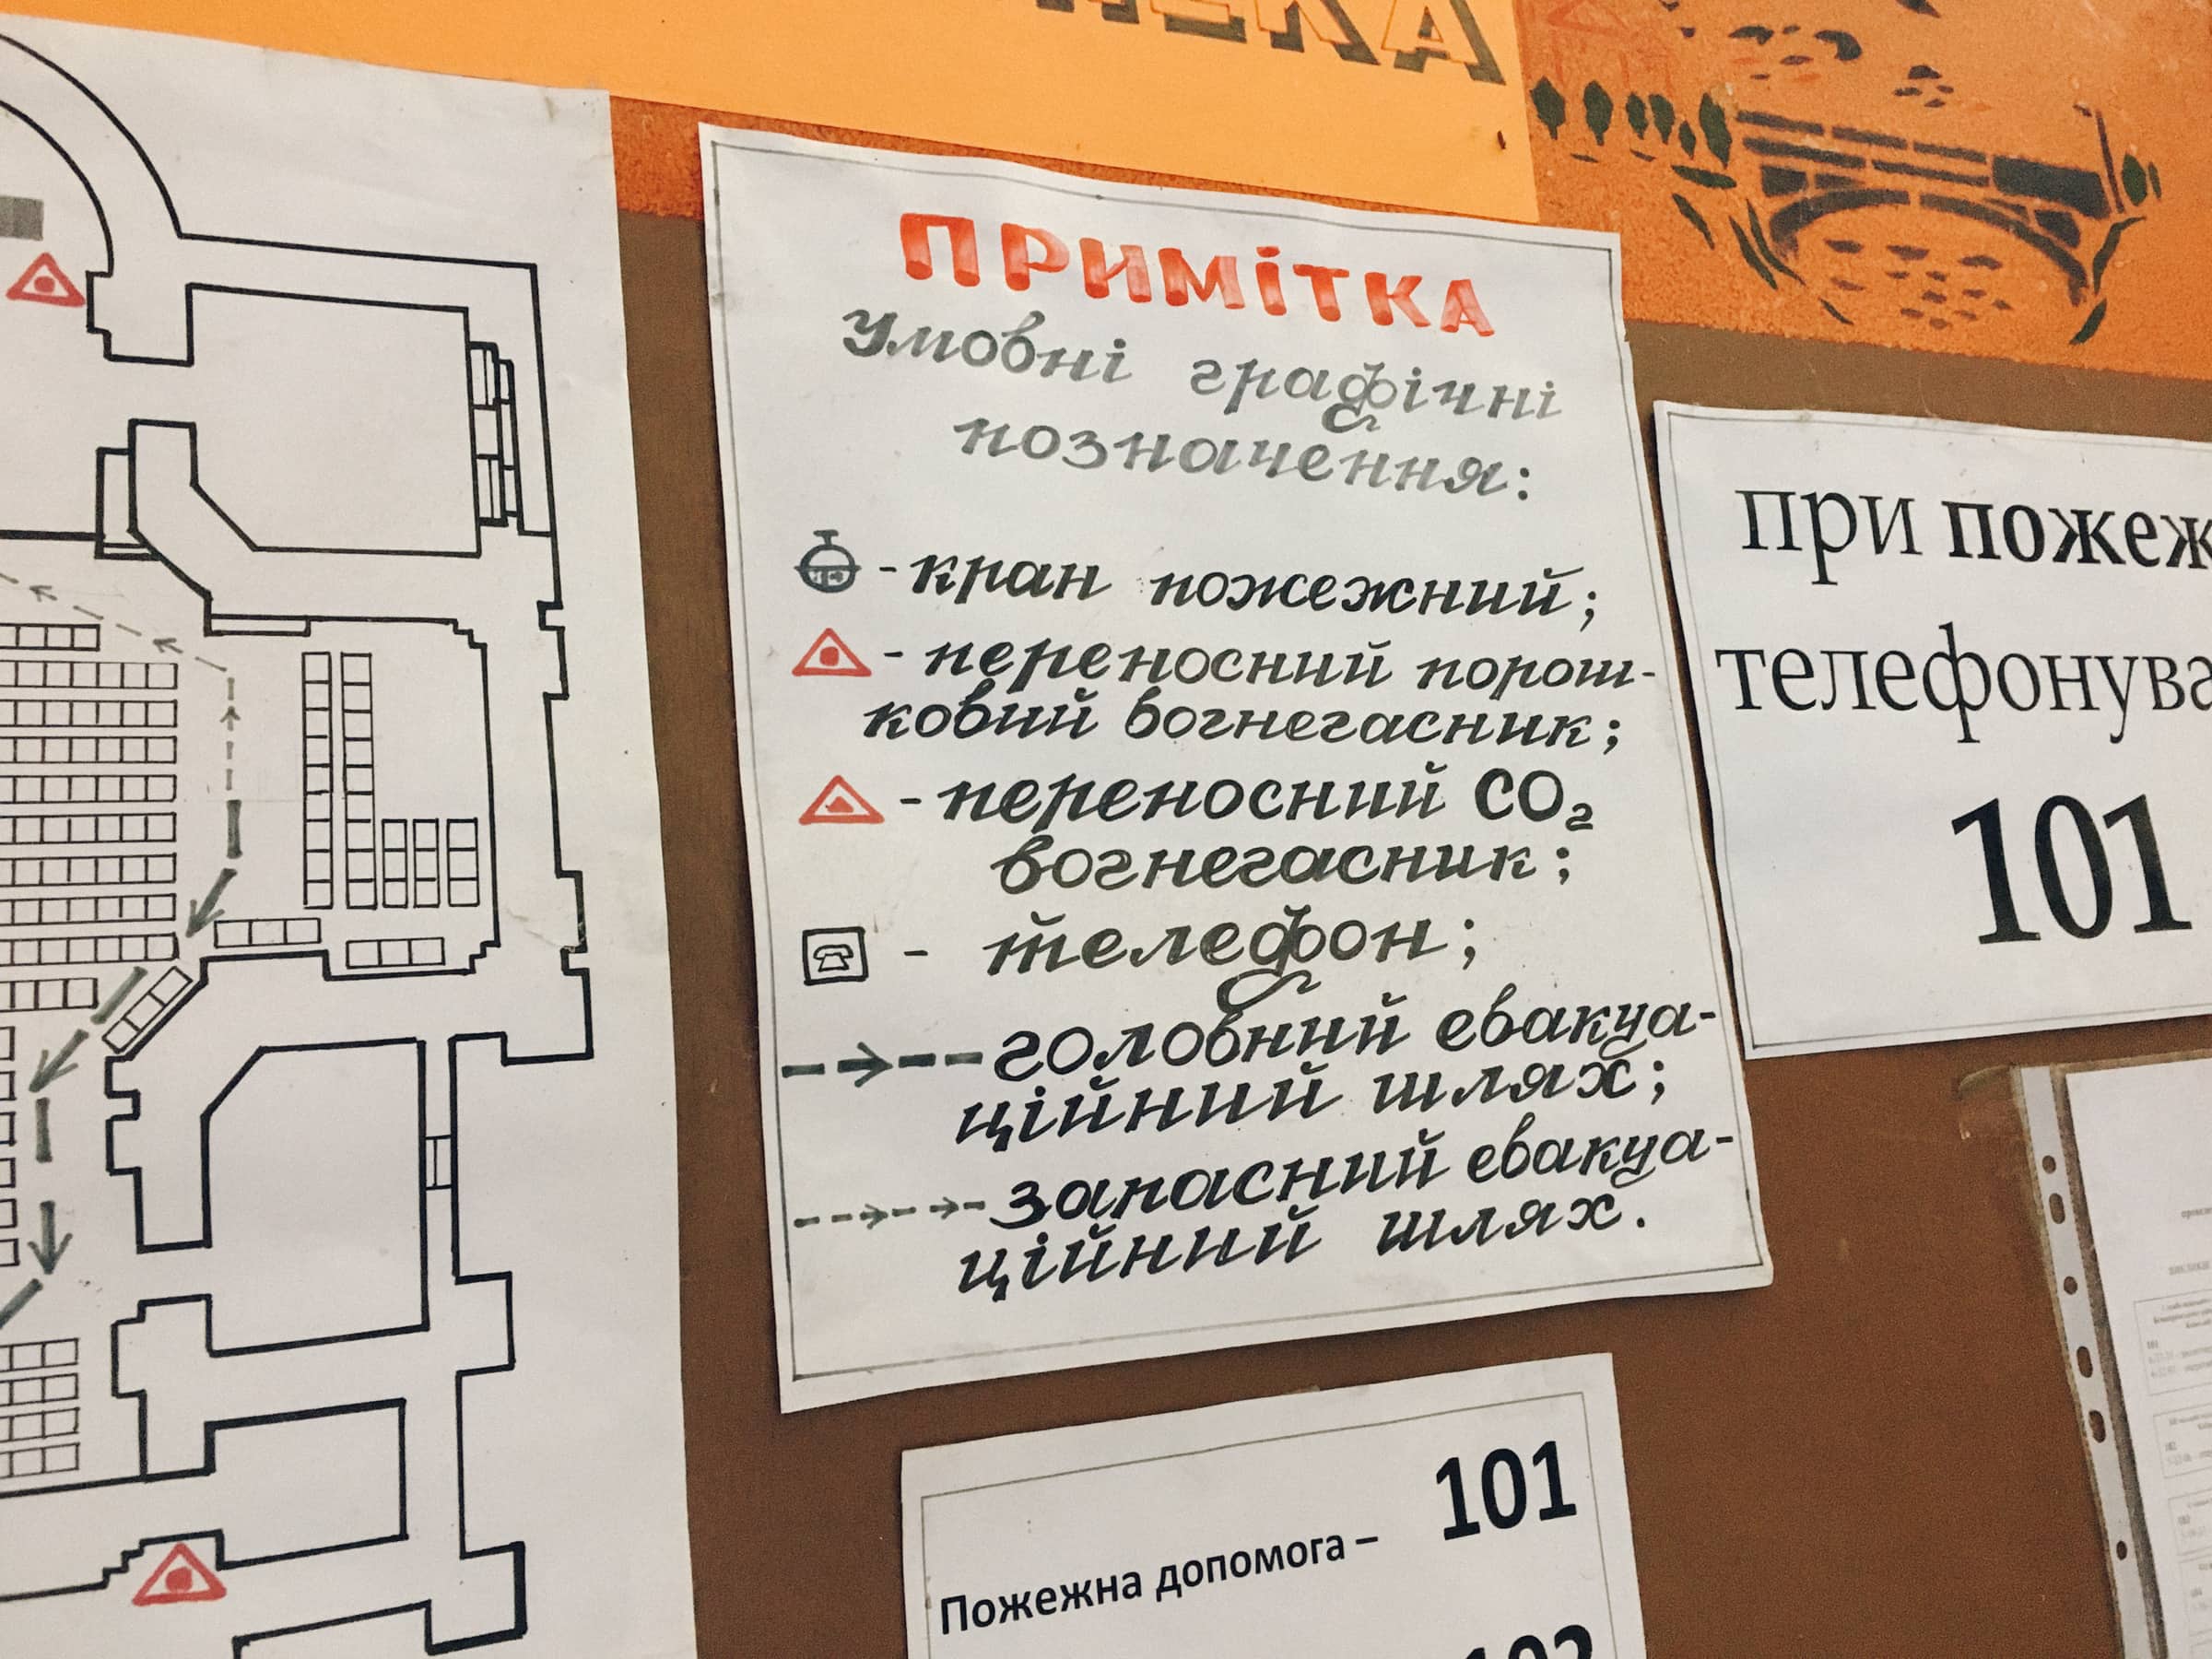 ПРИМІТКА
Умовні графічні
позначення:
- кран пожежний;
- переносний порош-
ковий вогнегасник;
- переносний CO₂
вогнегасник;
- телефон;
головний евакуа-
ційний шлях;
запасний евакуа-
ційний шлях.
при пожеж
телефонува
101
Пожежна допомога – 101
102